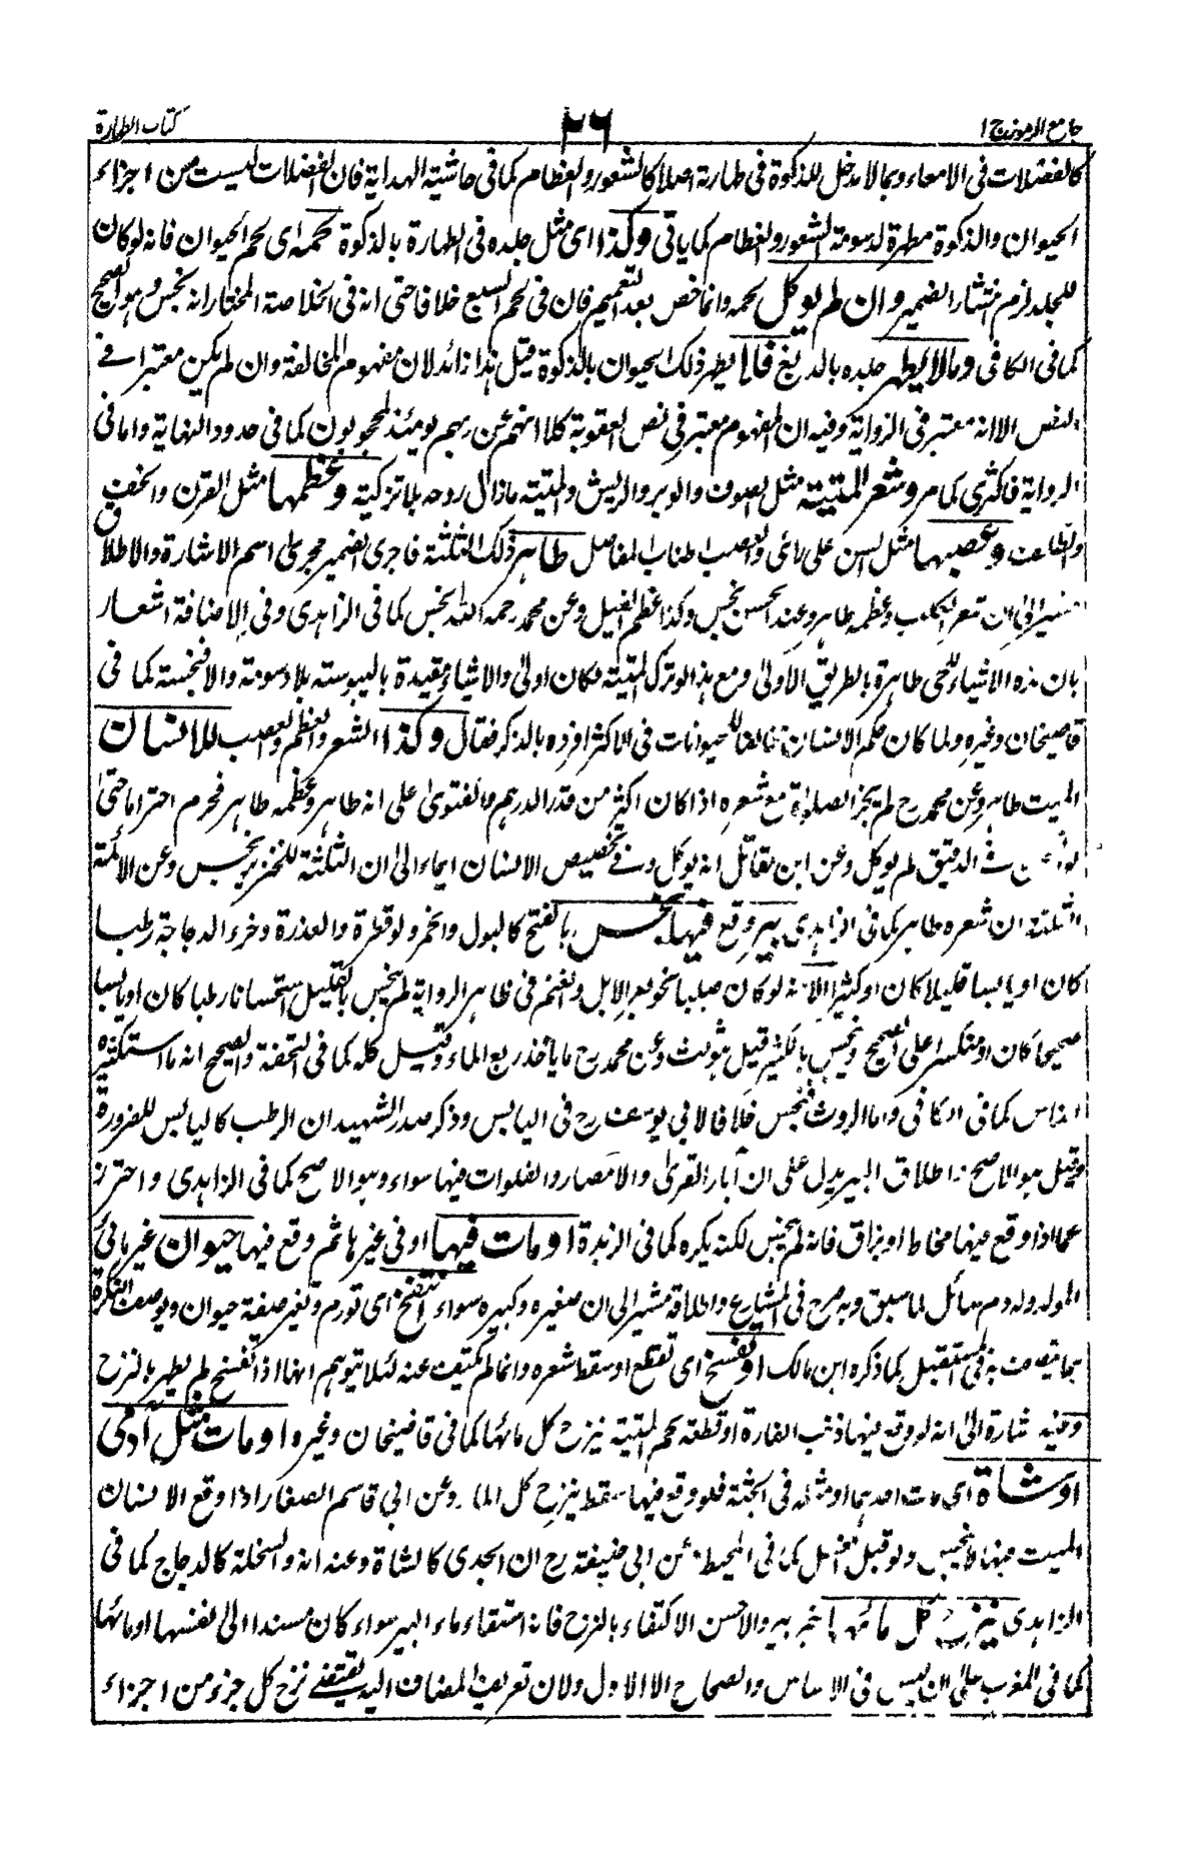 جامع الرموز ج ١
٢٦
كتاب الطهارة
كالفضلات فى الامعاء وبما لا مدخل للذكوة فى طهارته اصلا كالشعور والعظام كما فى حاشية الهداية فان الفضلات ليست من اجزاء
الحيوان والذكوة مطهرة لدسومة الشعور والعظام كما ياتى وكذا اى مثل جلده فى الطهارة بالذكوة لحمه اى لحم الحيوان فانه لو كان
للجلد لزم انتشار الضمير وان لم يوكل لحمه وانما خص بعد التعميم فان فى لحم السبع خلافا حتى انه فى الخلاصة المختار انه نجس وهو الصحيح
كما فى الكافى وما لا يطهر جلده بالدبغ فلا يطهر ذلك الحيوان بالذكوة قيل هذا زائد لان مفهوم المخالفة وان لم يكن معتبرا فى
النص الا انه معتبر فى الرواية وفيه ان المفهوم معتبر فى نص العقوبة كلا انهم عن ربهم يومئذ لمحجوبون كما فى حدود النهاية واما فى
الرواية فاكثرى كما مر وشعر الميتة مثل الصوف والوبر والريش والميتة ما زال روحه بلا تزكية وعظمها مثل القرن والخف
والظلف وعصبها مثل السن على راى والعصب اطناب المفاصل طاهر ذلك الثلثة فاجرى الضمير مجرى اسم الاشارة والاطلاق
مشير الى ان شعر الكلب وعظمه طاهر وعند الحسن نجس وكذا عظم الفيل وعن محمد رحمه الله نجس كما فى الزاهدى وفى الاضافة اشعار
بان هذه الاشياء للحى طاهرة بالطريق الاولى ومع هذا لو ترك الميتة لكان اولى والاشياء مقيدة باليبوسته بلا دسومة والا فنجسة كما فى
قاضيخان وغيره ولما كان حكم الانسان مخالفا للحيوانات فى الاكثر افرده بالذكر فقال وكذا الشعر والعظم والعصب للانسان
الميت طاهر وعن محمد رح لم يجز الصلوة مع شعره اذا كان اكثر من قدر الدرهم والفتوى على انه طاهر وعظمه طاهر فحرم احتراما حتى
الدقيق لم يوكل وعن ابن مقاتل انه يوكل وفى تخصيص الانسان ايماء الى ان الثلثة للخنزير نجس وعن الائمة
الثلثة ان شعره طاهر كما فى الزاهدى بير وقع فيها نجس بالفتح كالبول والخمر ولو قطرة والعذرة وخرء الدجاجة رطبا
كان او يابسا قليلا كان او كثيرا الا انه لو كان صلبا نحو بعر الابل والغنم فى ظاهر الرواية لم ينجس بالقليل استحسانا رطبا كان او يابسا
صحيحا كان او منكسرا على الصحيح ونجس بالكثير قيل بثوبث وعن محمد رح ما ياخذ ربع الماء وقيل كله كما فى التحفة والصحيح انه ما استكثره
الناس كما فى الكافى واما الروث فنجس خلافا لابى يوسف رح فى اليابس وذكر صدر الشهيد ان الرطب كاليابس للضرورة
وقيل هو الاصح واطلاق البير يدل على ان آبار القرى والامصار والفلوات فيها سواء وهو الاصح كما فى الزاهدى واحترز
عما اذا وقع فيها مخاط او بزاق فانه لم ينجس لكنه يكره كما فى الزبدة او مات فيها او فى غيرها ثم وقع فيها حيوان غير مائى
المولد وله دم سائل لما سبق وبه صرح فى المشارع واطلاقه مشير الى ان صغيره وكبيره سواء انتفخ اى تورم وتغير صفة حيوان ويوصف النكرة
بما يتصف به فى المستقبل كما ذكره ابن مالك او تفسخ اى تقطع او سقط شعره وانما لم يكتف عنه لئلا يتوهم انها اذا تفسخ لم يطهر بالنزح
وفيه اشارة الى انه لو وقع فيها ذنب الفارة او قطعة لحم الميتة ينزح كل مائها كما فى قاضيخان وغيره او مات مثل آدمى
او شاة اى مات احدهما او مثله فى الجثة فلو وقع فيها سقط ينزح كل الماء وعن ابى قاسم الصفار اذا وقع الانسان
الميت فيها لا ينجس ولو قبل الغسل كما فى المحيط عن ابى حنيفة رح ان الجدى كالشاة وعنه انه والسخلة كالدجاج كما فى
الزاهدى ينزح كل مائها خبر بير والاحسن الاكتفاء بالنزح فانه استقاء ماء البير سواء كان مسندا الى نفسها او مائها
كما فى المغرب على ان ليس فى الاساس والصحاح الا الاول ولان تعريف المضاف اليه يقتضى نزح كل جزء من اجزاء